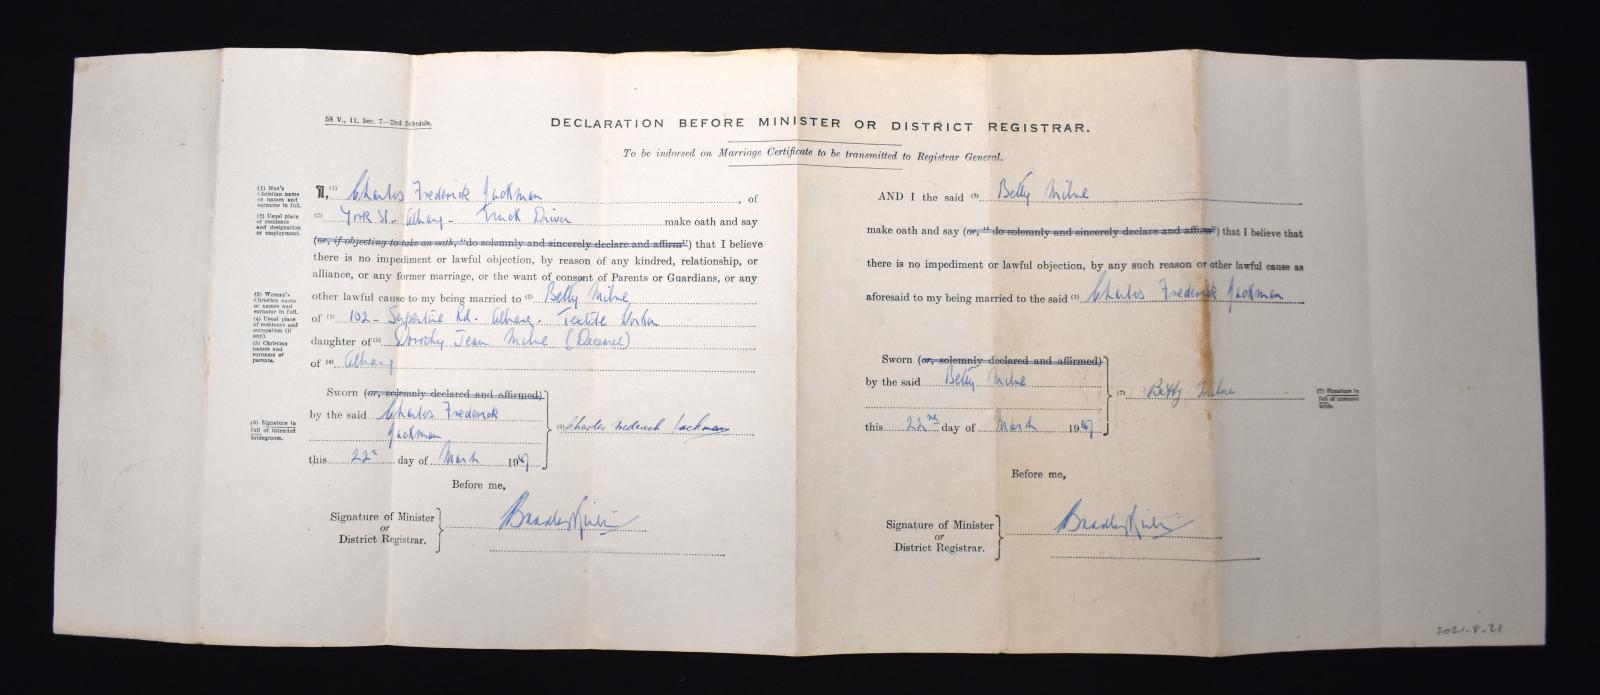 58 V., 11, Sec. 7—2nd Schedule.
DECLARATION BEFORE MINISTER OR DISTRICT REGISTRAR.
To be indorsed on Marriage Certificate to be transmitted to Registrar General.
(1) Man's Christian name or names and surname in full.
(2) Usual place of residence and designation or employment.
I, (1) Charles Frederick Jackman, of
(2) York St. Albany - Truck Driver make oath and say
(or, if objecting to take an oath, "do solemnly and sincerely declare and affirm") that I believe
there is no impediment or lawful objection, by reason of any kindred, relationship, or
alliance, or any former marriage, or the want of consent of Parents or Guardians, or any
(3) Woman's Christian name or names and surname in full.
(4) Usual place of residence and occupation (if any).
(5) Christian names and surname of parents.
other lawful cause to my being married to Betty Milne
of 102 - Serpentine Rd. Albany. Textile Worker
daughter of Dorothy Jean Milne (Deceased)
of Albany
Sworn (or, solemnly declared and affirmed)
by the said Charles Frederick
Jackman
(6) Signature in full of intended bridegroom.
(6) Charles Frederick Jackman
this 22nd day of March 1947
Before me,
Signature of Minister
or
District Registrar.
AND I the said Betty Milne
make oath and say (or, "do solemnly and sincerely declare and affirm") that I believe that
there is no impediment or lawful objection, by any such reason or other lawful cause as
aforesaid to my being married to the said (1) Charles Frederick Jackman
Sworn (or, solemnly declared and affirmed)
by the said Betty Milne
(7) Betty Milne
(7) Signature in full of intended bride.
this 22nd day of March 1947
Before me,
Signature of Minister
or
District Registrar.
2021.8.21